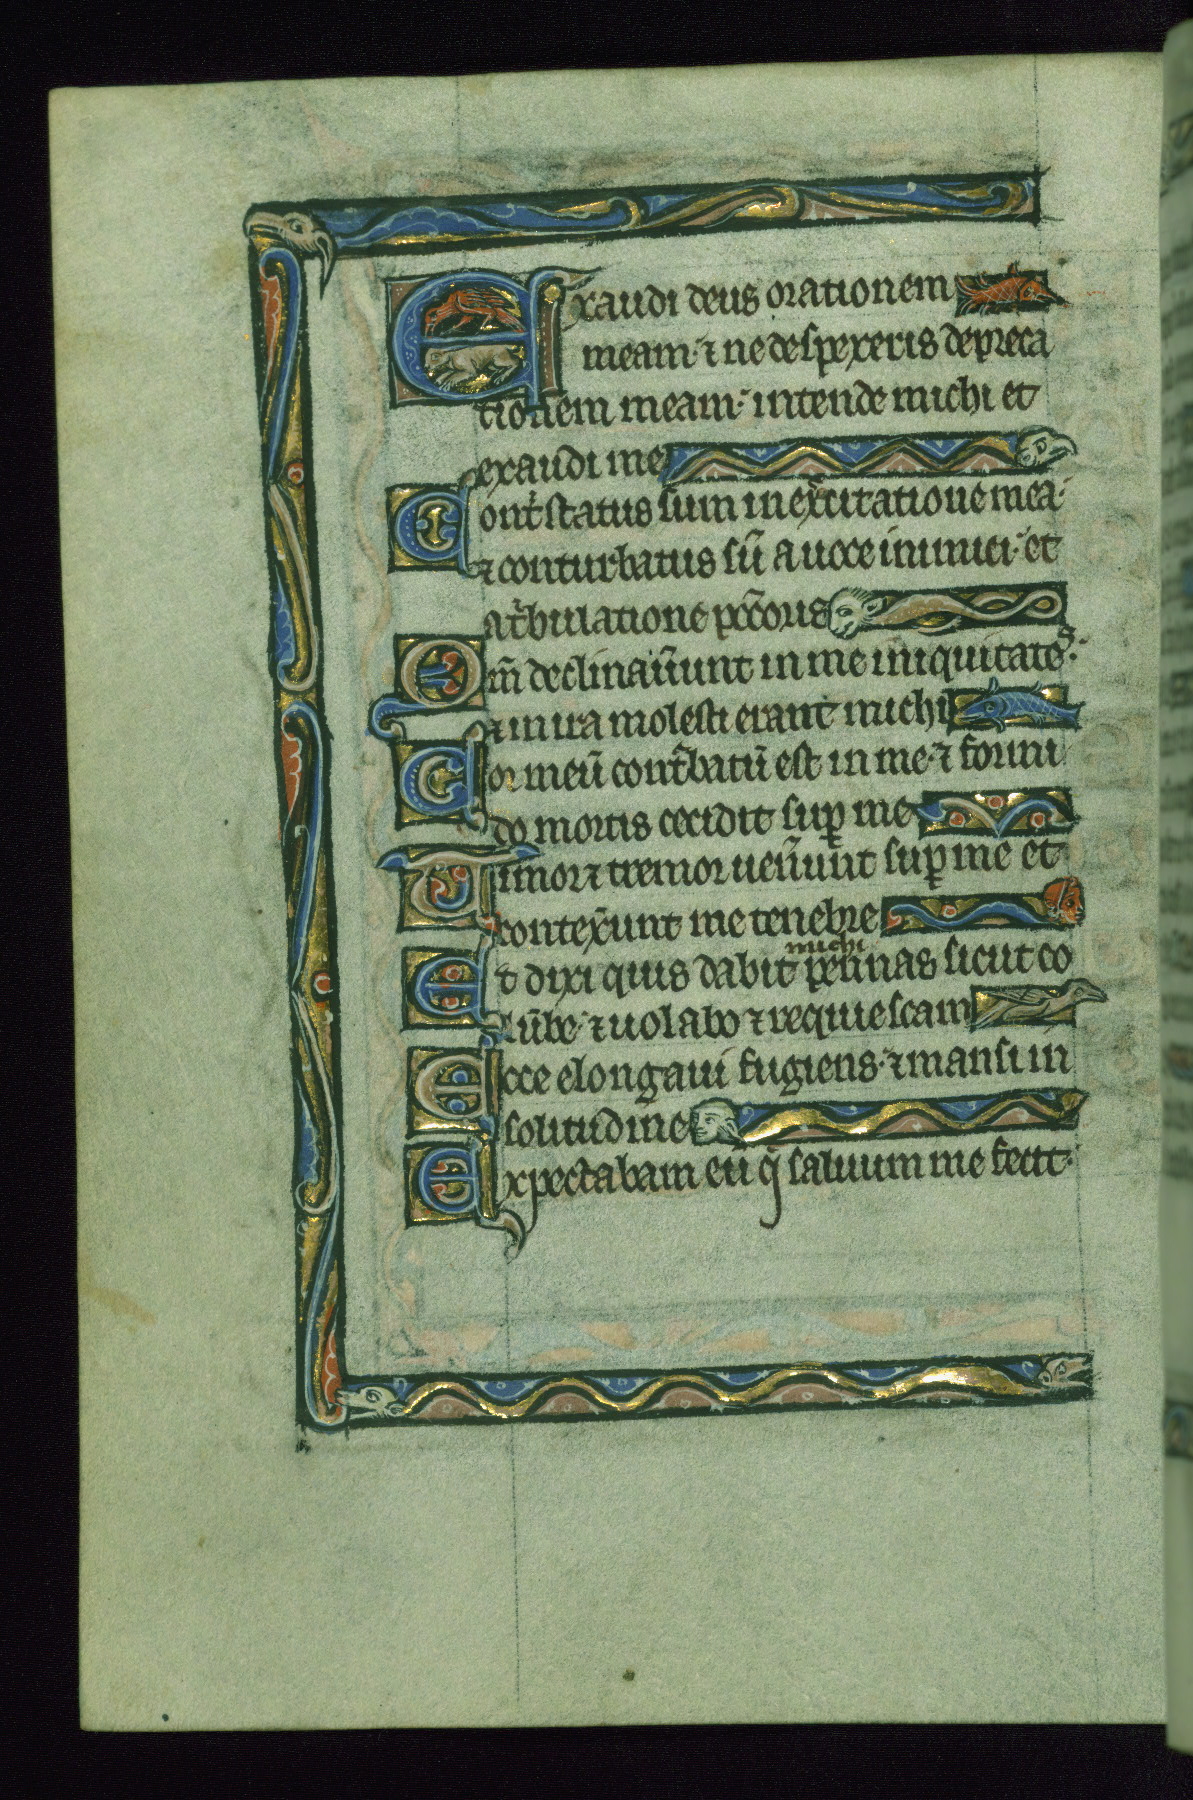 Exaudi deus orationem
meam ⁊ ne despexeris depreca
tionem meam· intende michi et
exaudi me
Contͥstatus sum in ex̾citatione mea·
⁊ conturbatus sū a uoce inimici· et
a tͥbulatione pccōris
Qm̄ declinau̾unt in me iniquitates·
⁊ in ira molesti erant michi
Cor meū cont̾batū est in me· ⁊ formi
do mortis cecidit suꝑ me
Timor ⁊ tremor uen̾unt suꝑ me et
contex̾unt me tenebre
michi
Et dixi quis dabit pennas sicut co
lūbe· ⁊ uolabo ⁊ requiescam
Ecce elongaui fugiens· ⁊ mansi in
solitudine
Expectabam eū q̇ saluum me fecit·